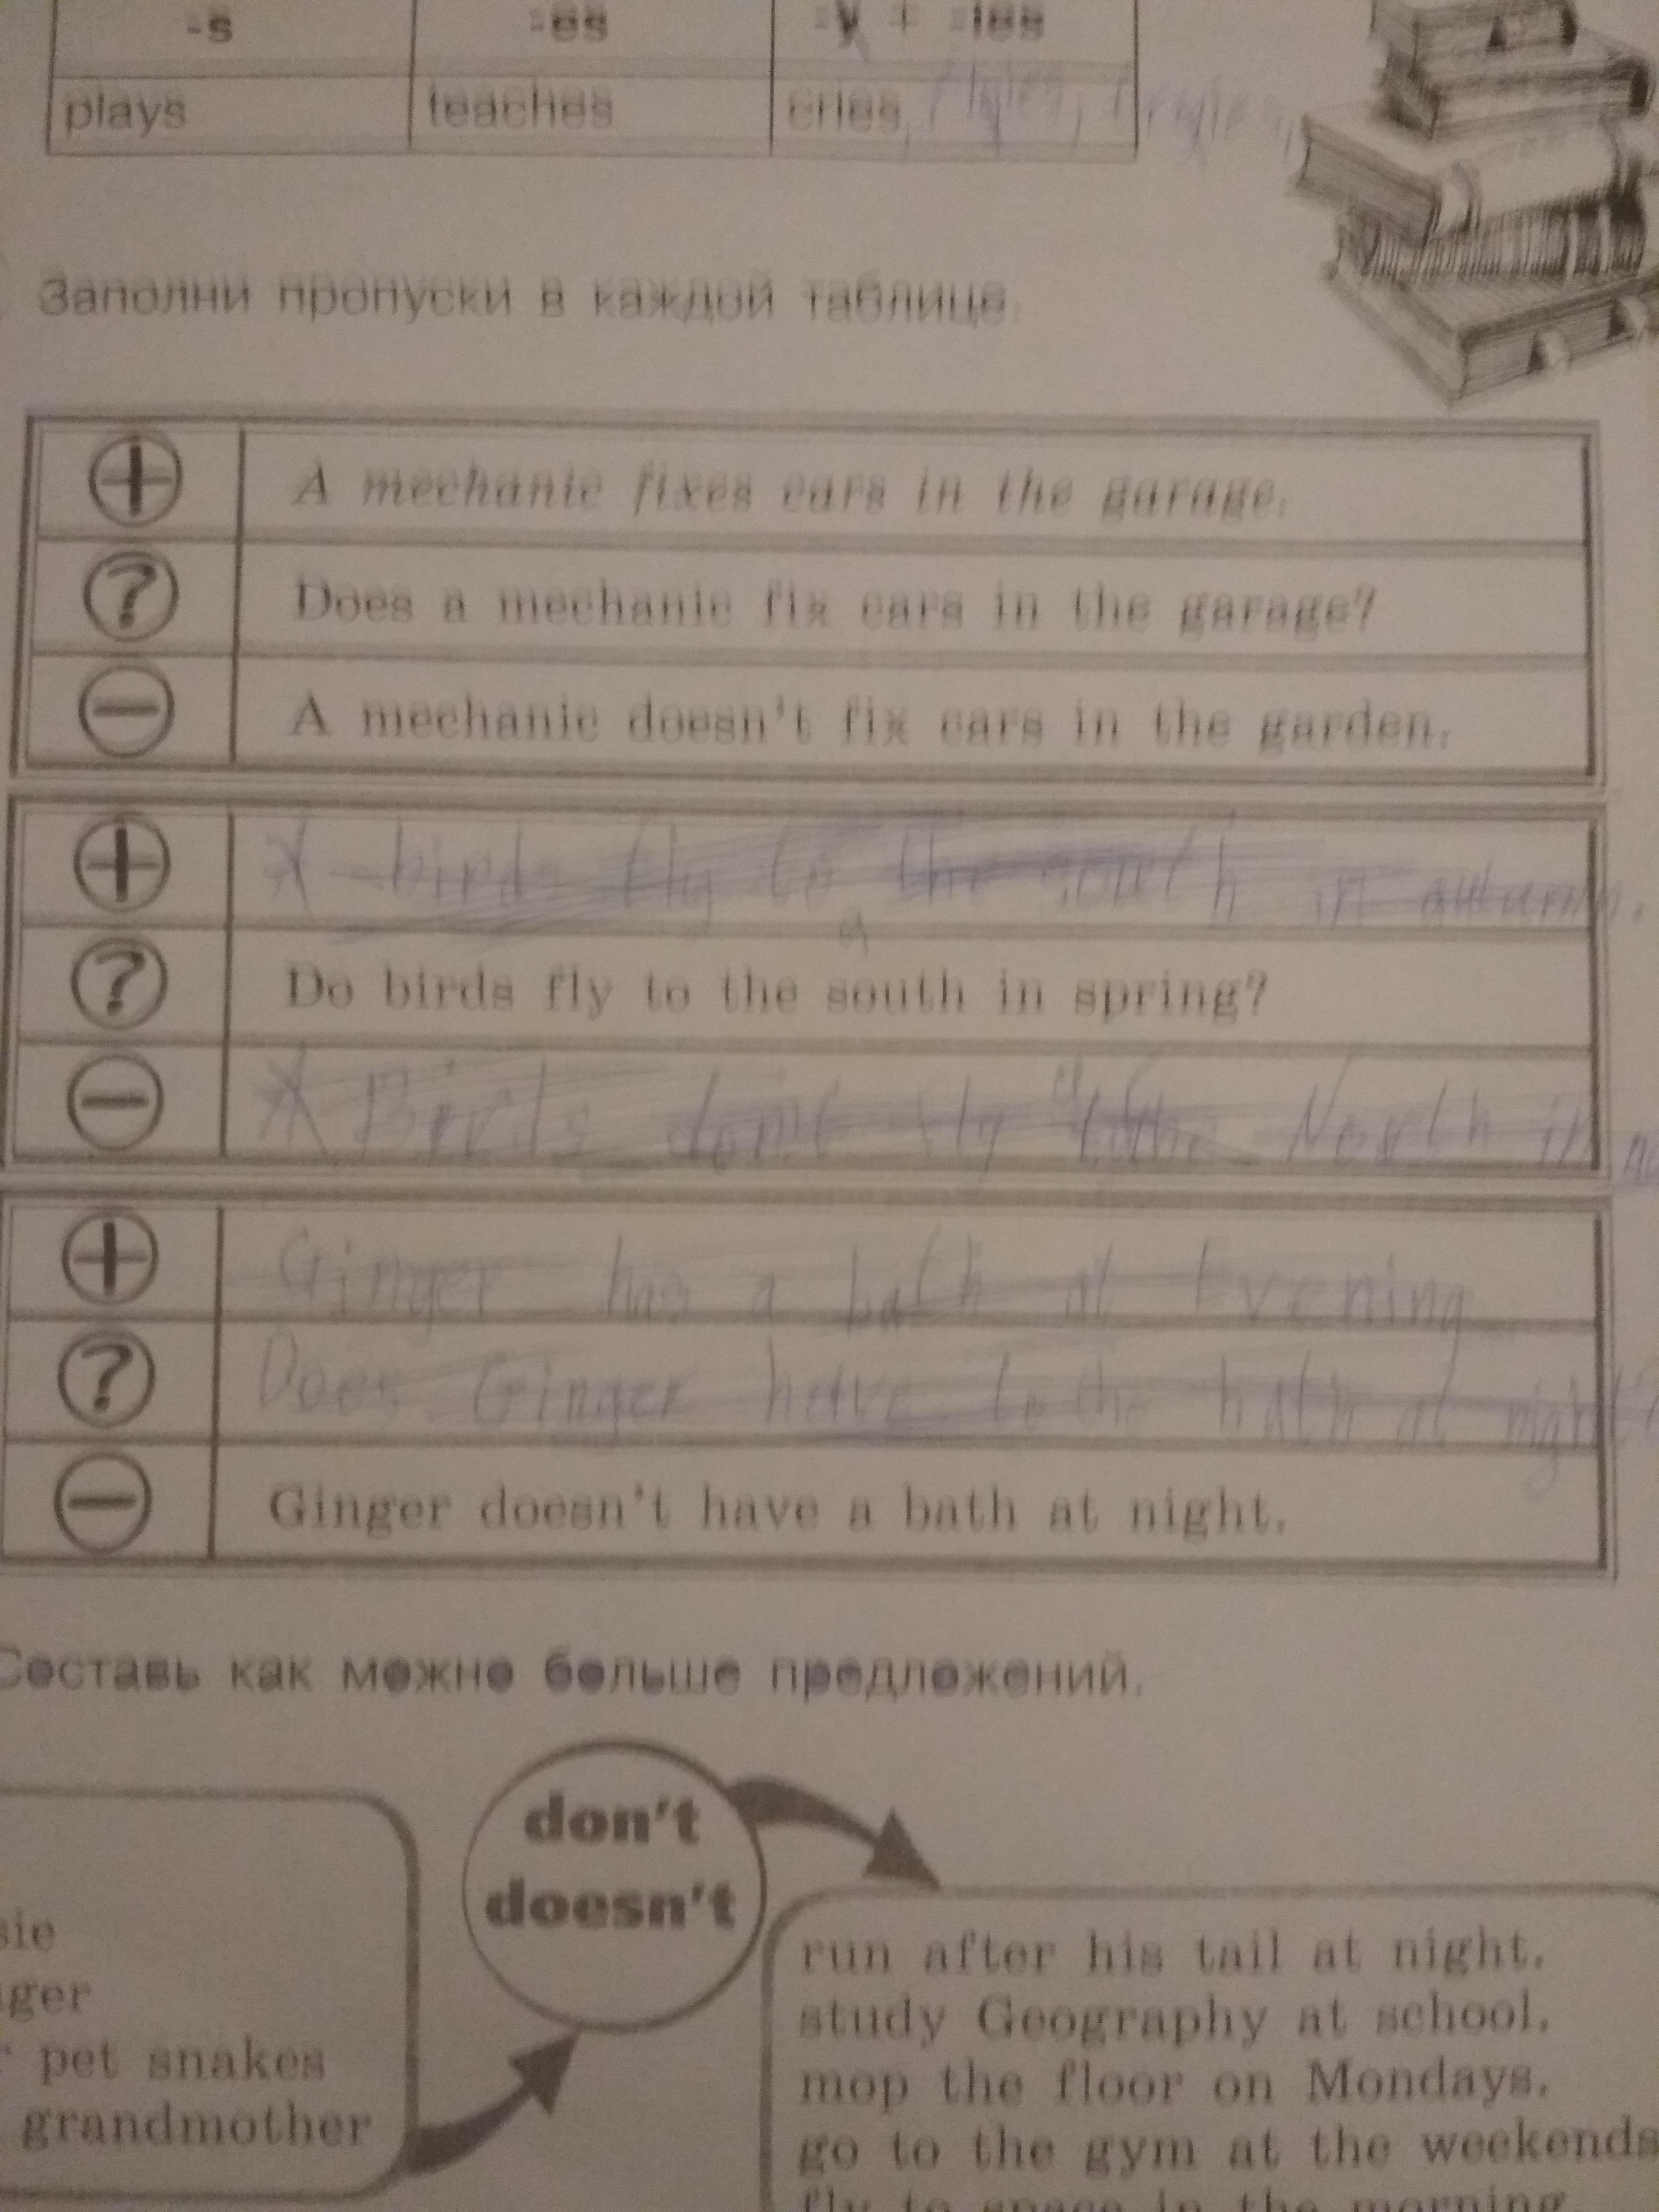 -s -es -y + -ies
plays teaches cries,
Заполни пропуски в каждой таблице.
+ A mechanic fixes cars in the garage.
? Does a mechanic fix cars in the garage?
− A mechanic doesn't fix cars in the garden.
+ birds fly to the south in autumn.
? Do birds fly to the south in spring?
− Birds don't fly the North in
+ Ginger has a bath at Evening
? Does Ginger have to the bath at night?
− Ginger doesn't have a bath at night.
Составь как можно больше предложений.
don't
doesn't
sie
ger
pet snakes
grandmother
run after his tail at night.
study Geography at school.
mop the floor on Mondays.
go to the gym at the weekends
fly to space in the morning